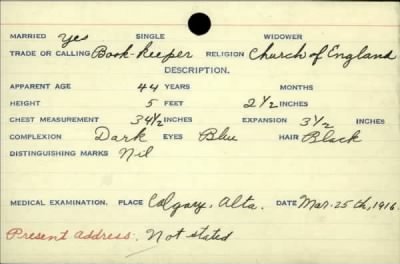 MARRIED yes SINGLE WIDOWER
TRADE OR CALLING Book-keeper RELIGION Church of England
DESCRIPTION.
APPARENT AGE 44 YEARS MONTHS
HEIGHT 5 FEET 2 1/2 INCHES
CHEST MEASUREMENT 34 1/2 INCHES EXPANSION 3 1/2 INCHES
COMPLEXION Dark EYES Blue HAIR Black
DISTINGUISHING MARKS Nil
MEDICAL EXAMINATION. PLACE Calgary, Alta. DATE Mar. 25th, 1916.
Present address: Not stated